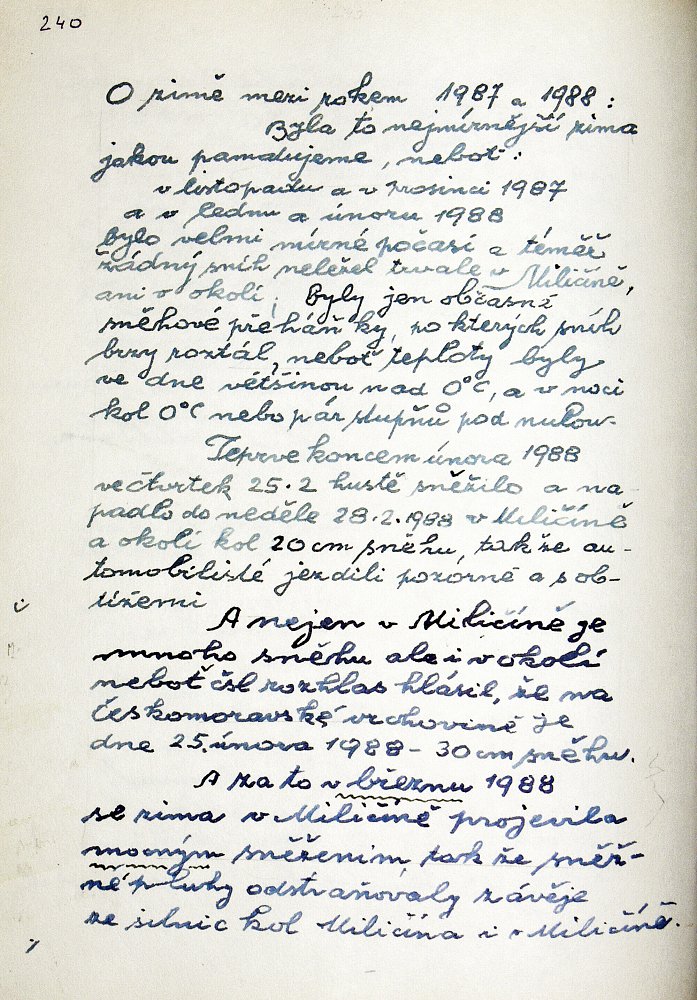 240
O zimě mezi rokem 1987 a 1988 :
Byla to nejmírnější zima
jakou pamatujeme, neboť :
v listopadu a v prosinci 1987
a v lednu a únoru 1988
bylo velmi mírné počasí a téměř
žádný sníh neležel trvale v Miličíně,
ani v okolí; byly jen občasné
sněhové přeháňky, po kterých sníh
brzy roztál, neboť teploty byly
ve dne většinou nad 0°C, a v noci
kol 0°C nebo pár stupňů pod nulou.
Teprve koncem února 1988
ve čtvrtek 25.2 hustě sněžilo a na-
padlo do neděle 28.2.1988 v Miličíně
a okolí kol 20 cm sněhu, tak že au-
tomobilisté jezdili pozorně a s ob-
tížemi
A nejen v Miličíně je
mnoho sněhu ale i v okolí
neboť čsl rozhlas hlásil, že na
Českomoravské vrchovině je
dne 25. února 1988 - 30 cm sněhu.
A za to v březnu 1988
se zima v Miličíně projevila
mocným sněžením, tak že sněž-
né pluhy odstraňovaly závěje
ze silnic kol Miličína i v Miličíně.